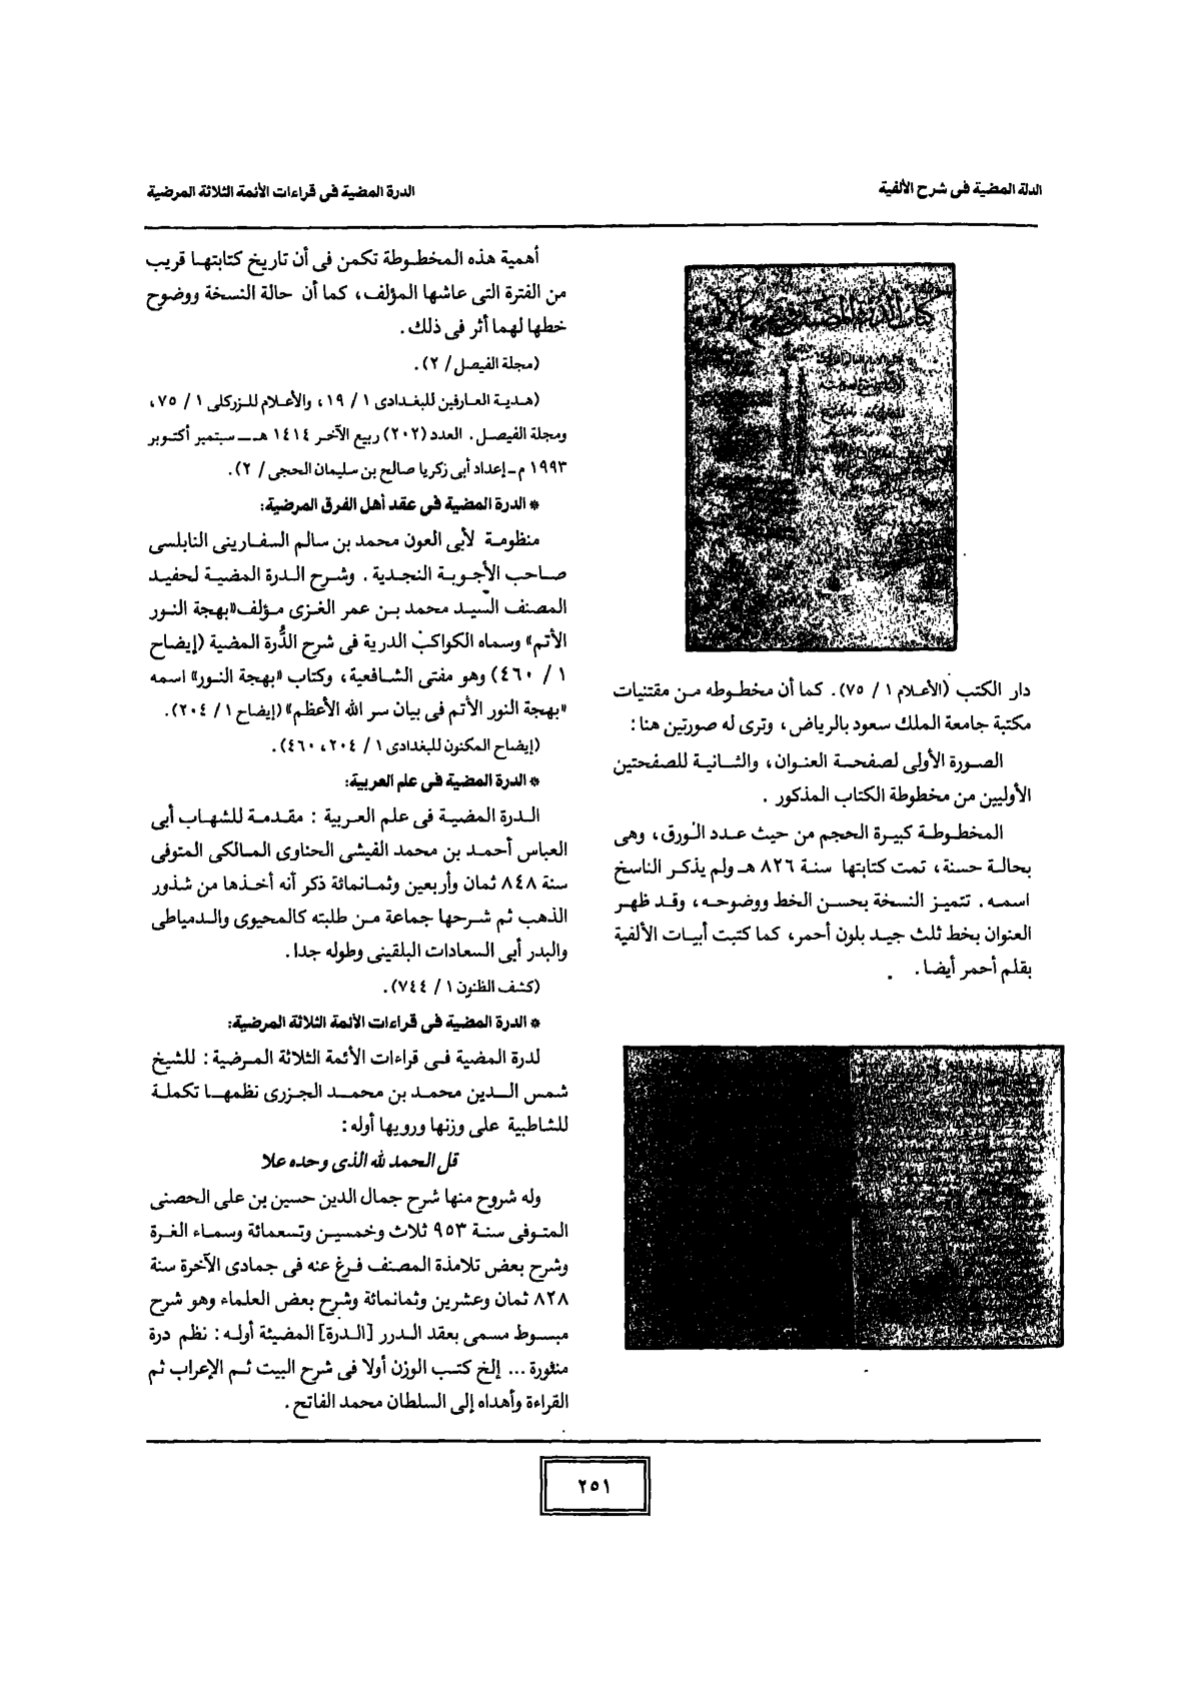 الدلة المضية فى شرح الألفية
الدرة المضية فى قراءات الأئمة الثلاثة المرضية
دار الكتب (الأعلام ١ / ٧٥). كما أن مخطوطه من مقتنيات
مكتبة جامعة الملك سعود بالرياض، وترى له صورتين هنا:
الصورة الأولى لصفحة العنوان، والثانية للصفحتين
الأوليين من مخطوطة الكتاب المذكور .
المخطوطة كبيرة الحجم من حيث عدد الورق، وهى
بحالة حسنة، تمت كتابتها سنة ٨٢٦ هـ ولم يذكر الناسخ
اسمه . تتميز النسخة بحسن الخط ووضوحه، وقد ظهر
العنوان بخط ثلث جيد بلون أحمر، كما كتبت أبيات الألفية
بقلم أحمر أيضا .
أهمية هذه المخطوطة تكمن فى أن تاريخ كتابتها قريب
من الفترة التى عاشها المؤلف، كما أن حالة النسخة ووضوح
خطها لهما أثر فى ذلك .
(مجلة الفيصل / ٢) .
(هدية العارفين للبغدادى ١ / ١٩، والأعلام للزركلى ١ / ٧٥،
ومجلة الفيصل . العدد (٢٠٢) ربيع الآخر ١٤١٤ هـ ــ سبتمبر أكتوبر
١٩٩٣ م ـ إعداد أبى زكريا صالح بن سليمان الحجى / ٢).
* الدرة المضية فى عقد أهل الفرق المرضية:
منظومة لأبى العون محمد بن سالم السفارينى النابلسى
صاحب الأجوبة النجدية . وشرح الدرة المضية لحفيد
المصنف السيد محمد بن عمر الغزى مؤلف «بهجة النور
الأتم» وسماه الكواكب الدرية فى شرح الدُّرة المضية (إيضاح
١ / ٤٦٠) وهو مفتى الشافعية، وكتاب «بهجة النور» اسمه
«بهجة النور الأتم فى بيان سر الله الأعظم» (إيضاح ١ / ٢٠٤).
(إيضاح المكنون للبغدادى ١ / ٢٠٤، ٤٦٠) .
* الدرة المضية فى علم العربية:
الدرة المضية فى علم العربية : مقدمة للشهاب أبى
العباس أحمد بن محمد الفيشى الحناوى المالكى المتوفى
سنة ٨٤٨ ثمان وأربعين وثمانمائة ذكر أنه أخذها من شذور
الذهب ثم شرحها جماعة من طلبته كالمحيوى والدمياطى
والبدر أبى السعادات البلقينى وطوله جدا .
(كشف الظنون ١ / ٧٤٤) .
* الدرة المضية فى قراءات الأئمة الثلاثة المرضية:
لدرة المضية فى قراءات الأئمة الثلاثة المرضية : للشيخ
شمس الدين محمد بن محمد الجزرى نظمها تكملة
للشاطبية على وزنها ورويها أوله :
قل الحمد لله الذى وحده علا
وله شروح منها شرح جمال الدين حسين بن على الحصنى
المتوفى سنة ٩٥٣ ثلاث وخمسين وتسعمائة وسماء الغرة
وشرح بعض تلامذة المصنف فرغ عنه فى جمادى الآخرة سنة
٨٢٨ ثمان وعشرين وثمانمائة وشرح بعض العلماء وهو شرح
مبسوط مسمى بعقد الدرر [الدرة] المضيئة أوله : نظم درة
منثورة ... إلخ كتب الوزن أولا فى شرح البيت ثم الإعراب ثم
القراءة وأهداه إلى السلطان محمد الفاتح .
٢٥١